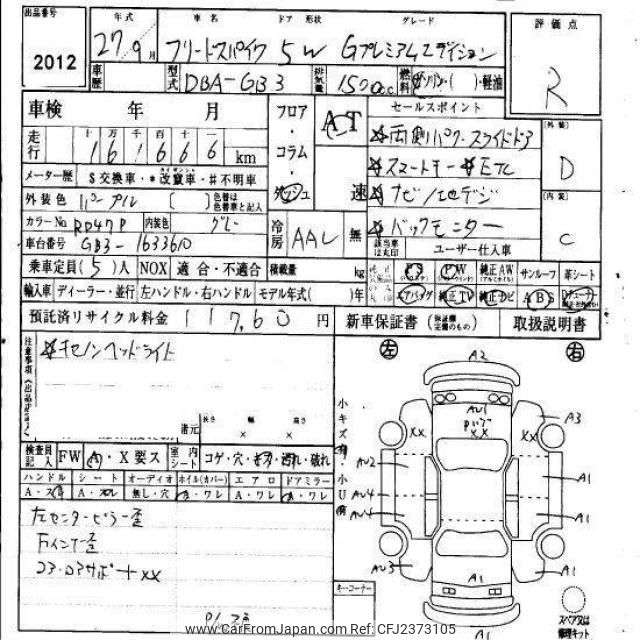 出品番号 年式 車名 ドア 形状 グレード 評価点
2012 27 9月 フリードスパイク 5W Gプレミアムエディション R
車歴 型式 DBA-GB3 排気量 1500cc 燃料 ガソリン・( )・軽油
車検 年 月 フロア・コラム・ダッシュ AT セールスポイント
走行 十万千百十一 161666 km 両側パワースライドドア 外装 D
メーター歴 $ 交換車・* 改竄車・# 不明車 スマートキー ETC
外装色 パープル ( ) 色替は色替車と記入 速 ナビ/地デジ 内装 C
カラーNo RP47P 内装色 グレー 冷房 AAC 無 バックモニター
車台番号 GB3-1633610 該当車は丸印 ユーザー仕入車
乗車定員(5)人 NOX 適合・不適合 積載量 kg PS PW 純正AW サンルーフ 革シート
輸入車 ディーラー・並行 左ハンドル・右ハンドル モデル年式( )年 エアバッグ 純正TV 純正ナビ ABS
預託済リサイクル料金 11760円 新車保証書 (保証欄完備のもの) 取扱説明書
注意事項 キセノンヘッドライト 左 右
諸元 長さ 幅 高さ × ×
検査員記入 FW A・X要ス 室内シート コゲ・穴・キズ・汚れ・破れ
ハンドル シート オーディオ ホイル(カバー) エアロ ドアミラー
A・スレ 無し・穴 A・ワレ A・ワレ A・ワレ
左センターピラー歪
Fインナー歪
コアサポート XX
小キズ有・小U有
A2
AU1
XX
XX
XX
A3
AU2
A1
AU4
AU4
A1
AU3
A1
A1
A1
キーコーナー
スペアタイヤ又は修理キット
www.CarFromJapan.com Ref: CFJ2373105